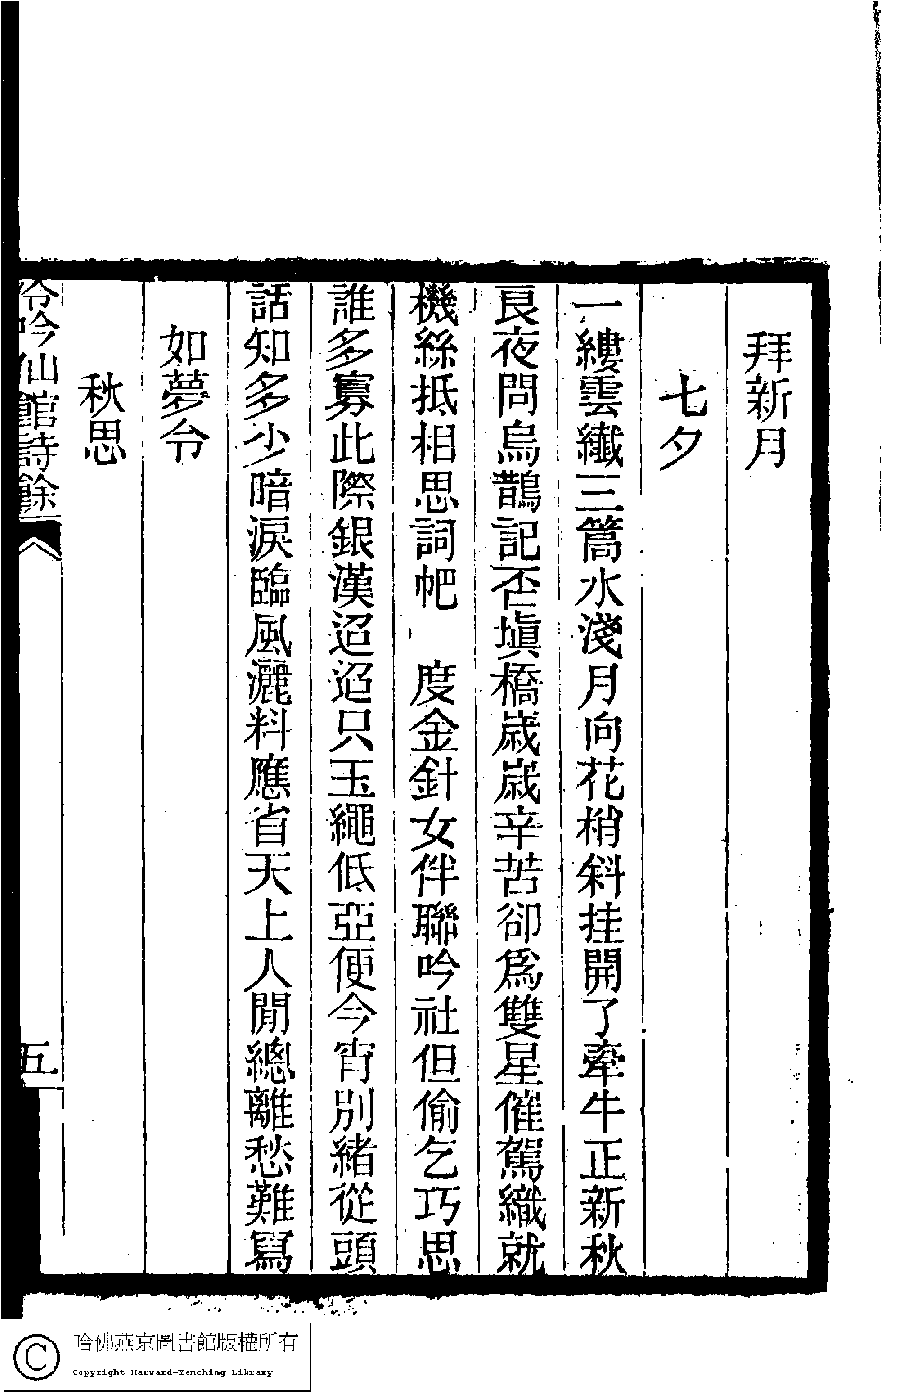 拜新月
七夕
一縷雲纎三篙水淺月向花梢斜挂開了牽牛正新秋
良夜問烏鵲記否塡橋歲歲辛苦卻爲雙星催駕織就
機絲抵相思詞帊　度金針女伴聯吟社但偷乞巧思
誰多寡此際銀漢迢迢只玉繩低亞便今宵別緒從頭
話知多少暗淚臨風灑料應省天上人閒總離愁難寫
如夢令
秋思
泠吟仙館詩餘
五
哈佛燕京圖書館版權所有
Copyright Harvard-Yenching Library